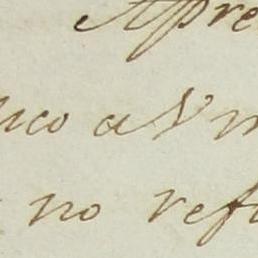 Apre
uco a Vm
no ref